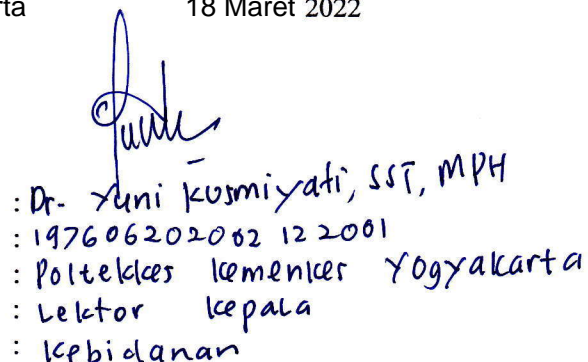 rta 18 Maret 2022
: Dr. Yuni Kusmiyati, SST, MPH
: 197606202002 12 2001
: Poltekkes Kemenkes Yogyakarta
: Lektor Kepala
: Kebidanan